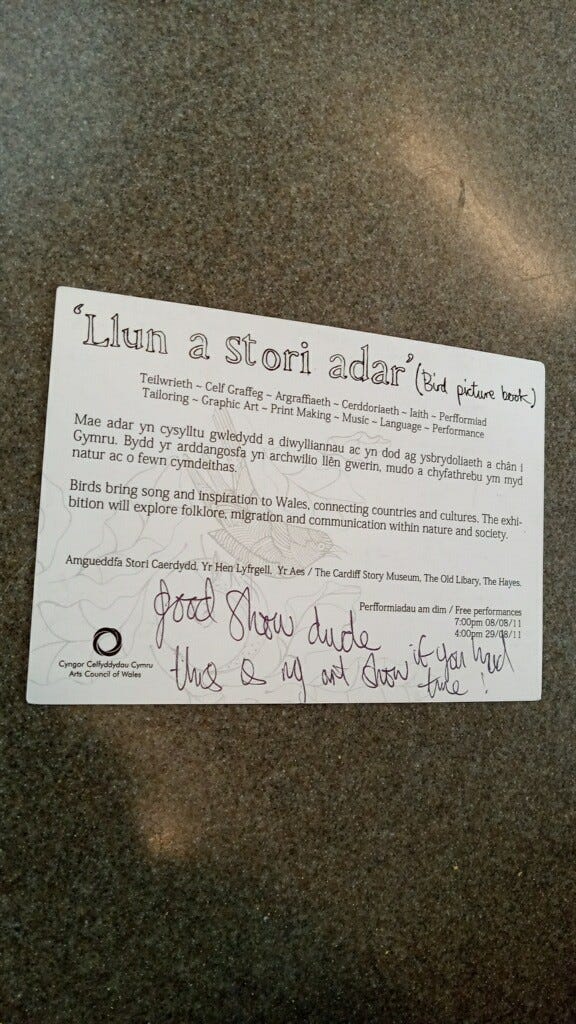 'Llun a stori adar' (Bird picture book)
Teilwrieth ~ Celf Graffeg ~ Argraffiaeth ~ Cerddoriaeth ~ Iaith ~ Perfformiad
Tailoring ~ Graphic Art ~ Print Making ~ Music ~ Language ~ Performance
Mae adar yn cysylltu gwledydd a diwylliannau ac yn dod ag ysbrydoliaeth a chân i
Gymru. Bydd yr arddangosfa yn archwilio llên gwerin, mudo a chyfathrebu ym myd
natur ac o fewn cymdeithas.
Birds bring song and inspiration to Wales, connecting countries and cultures. The exhi-
bition will explore folklore, migration and communication within nature and society.
Amgueddfa Stori Caerdydd, Yr Hen Lyfrgell, Yr Aes / The Cardiff Story Museum, The Old Libary, The Hayes.
Perfformiadau am dim / Free performances
7:00pm 08/08/11
4:00pm 29/08/11
good show dude
this is my art show if you had
time!
Cyngor Celfyddydau Cymru
Arts Council of Wales